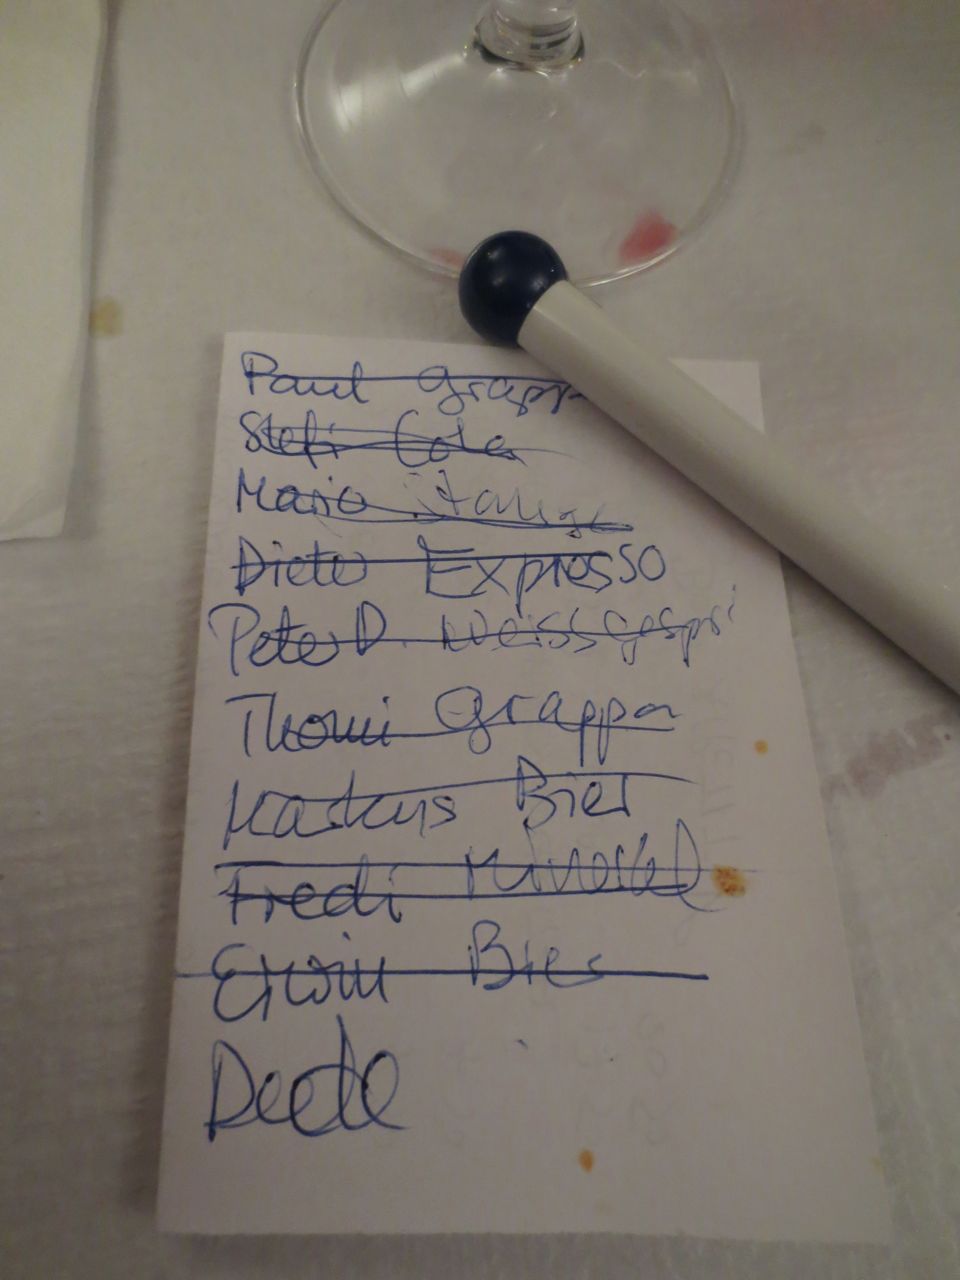 Paul Grapp
Stefi Cola
Mario
Dieter Expresso
Peter D. Weissgespri
Thomi Grappa
Markus Bier
Fredi Mineral
Erwin Bier